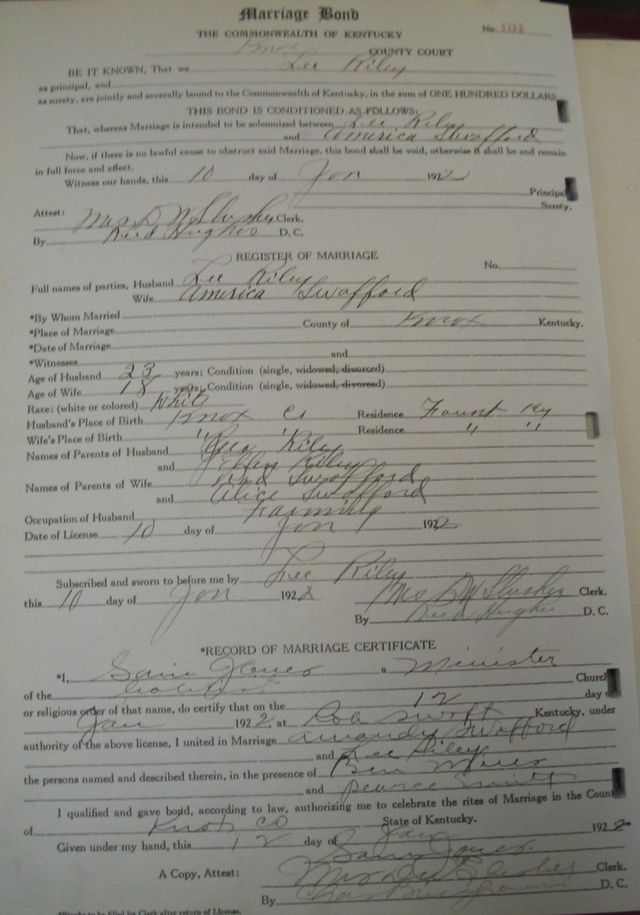 Marriage Bond
THE COMMONWEALTH OF KENTUCKY
No. 101
Knox COUNTY COURT
BE IT KNOWN, That we Lee Riley
as principal, and
as surety, are jointly and severally bound to the Commonwealth of Kentucky, in the sum of ONE HUNDRED DOLLARS
THIS BOND IS CONDITIONED AS FOLLOWS:
That, whereas Marriage is intended to be solemnized between Lee Riley
and America Swafford
Now, if there is no lawful cause to obstruct said Marriage, this bond shall be void, otherwise it shall be and remain
in full force and effect.
Witness our hands, this 10 day of Jan 1922
Principal
Surety.
Attest: Mrs D W Slusher Clerk.
By Reed Hughes D. C.
REGISTER OF MARRIAGE
No.
Full names of parties, Husband Lee Riley
Wife America Swafford
*By Whom Married
*Place of Marriage County of Knox Kentucky.
*Date of Marriage
*Witnesses and
Age of Husband 23 years; Condition (single, widowed, divorced)
Age of Wife 18 years; Condition (single, widowed, divorced)
Race: (white or colored) White
Husband's Place of Birth Knox Co Residence Fount Ky
Wife's Place of Birth " " Residence " "
Names of Parents of Husband Riley
and Ellen Riley
Names of Parents of Wife Swafford
and Alice Swafford
Occupation of Husband Farming
Date of License 10 day of Jan 1922
Subscribed and sworn to before me by Lee Riley
this 10 day of Jan 1922 Mrs D W Slusher Clerk.
By Reed Hughes D. C.
*RECORD OF MARRIAGE CERTIFICATE
*I, Jones a Minister
of the Church
or religious order of that name, do certify that on the 12 day of
Jan 1922, at Kentucky, under
authority of the above license, I united in Marriage Swafford
and Lee Riley
the persons named and described therein, in the presence of Ben
and
I qualified and gave bond, according to law, authorizing me to celebrate the rites of Marriage in the Count
of Knox Co State of Kentucky.
Given under my hand, this 12 day of Jan 1922
Jones
A Copy, Attest: Mrs D W Slusher Clerk.
By D. C.